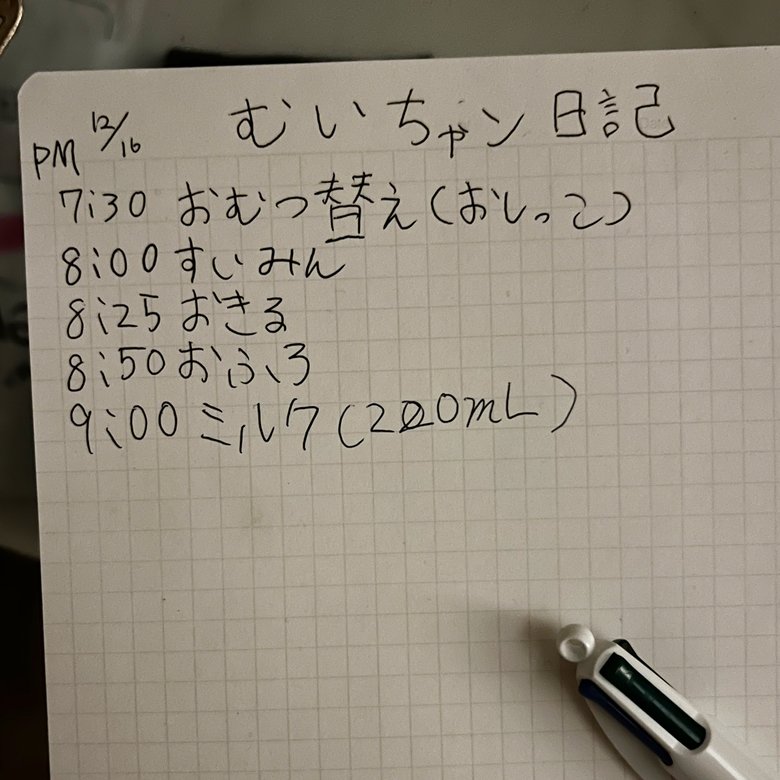 12/16 むいちゃン 日記
PM
7:30 おむつ替え(おしっこ)
8:00 すいみん
8:25 おきる
8:50 おふろ
9:00 ミルク(200mL)